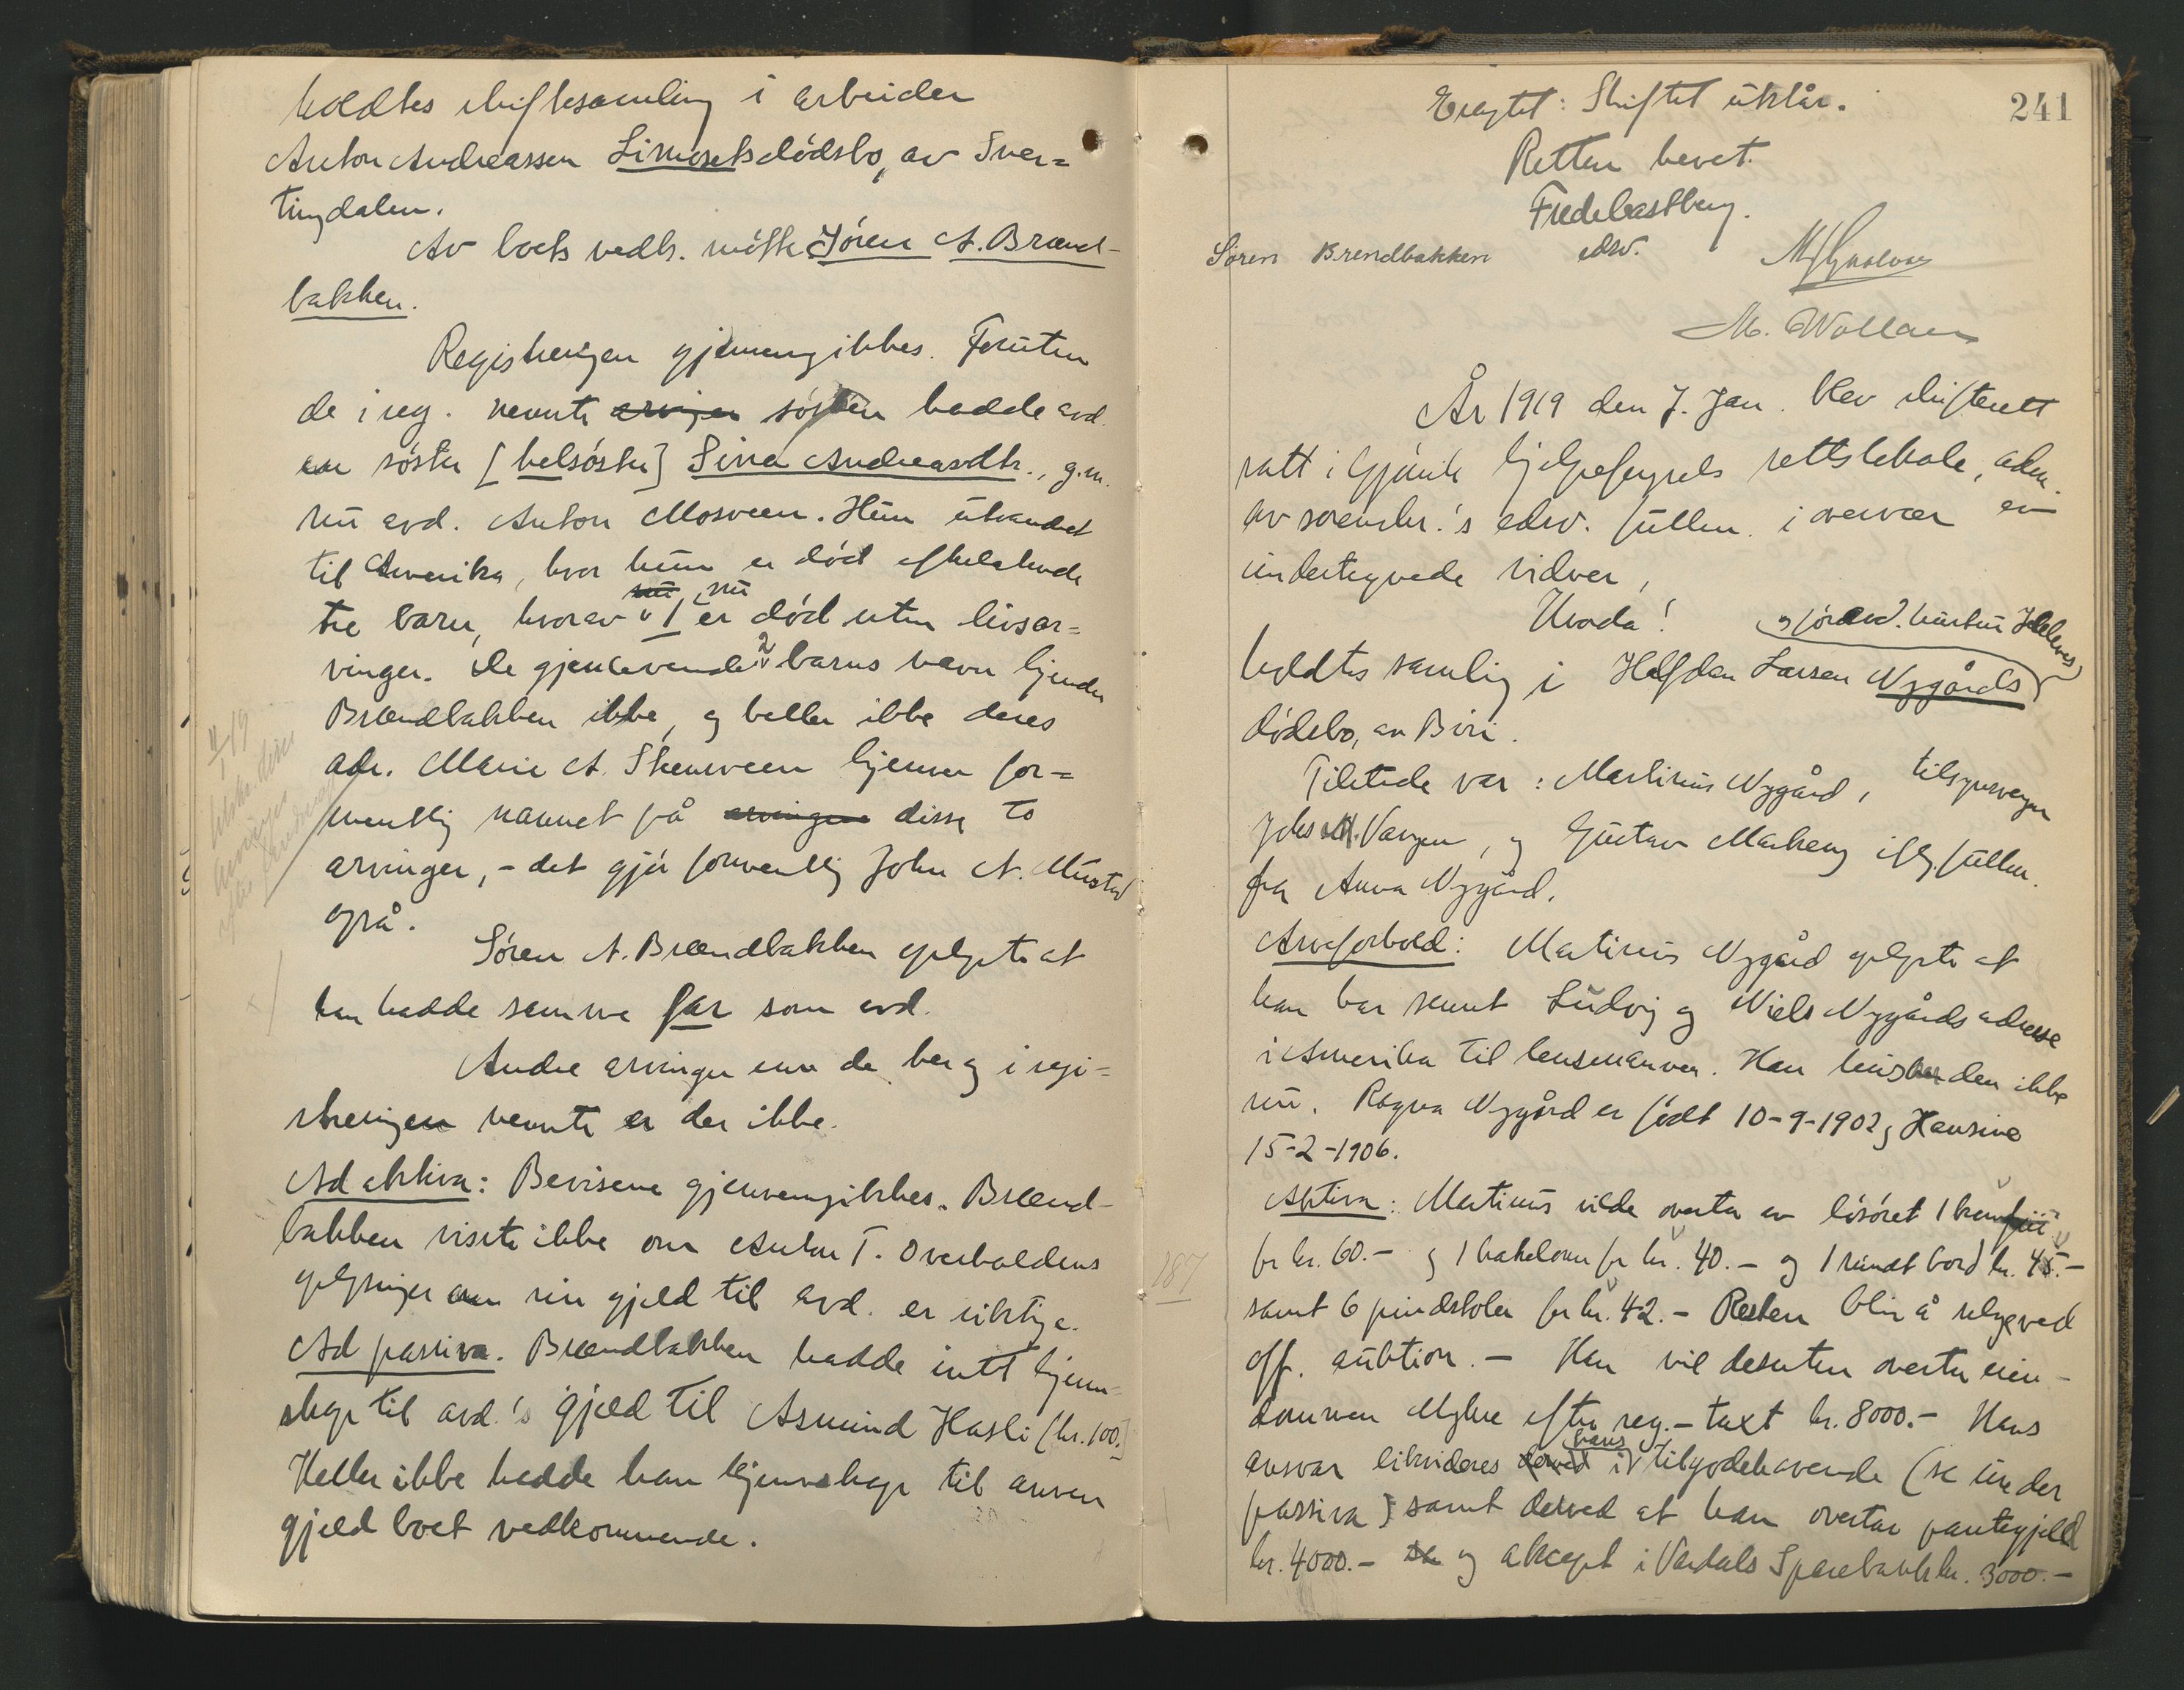 holdtes skiftesamling i arbeider
Anton Andreassen Linnesets dødsbo, av Sner=
tingdalen.
Av boets vedk. møtte Søren A. Brænd-
bakken.
Registreringen gjennemgikkes. Foruten
de i reg. nevnte arvinger søsken hadde avd.
en søster [helsøster] Sina Andreasdtr., g.m.
nu avd. Anton Mosveen. Hun utvandret
til Amerika, hvor hun er død efterlatende
tre barn, hvorav 1 nu er død uten livsar=
vinger. De gjenlevende 2 barns navn kjender
Brændbakken ikke, og heller ikke deres
adr. Marie A. Skumsveen kjenner for=
mentlig navnet på arvingene disse to
arvinger, - det gjør formentlig John A. Mustad
også.
Søren A. Brændbakken oplyste at
han hadde samme far som avd.
Andre arvinger enn de her og i regi=
streringen nevnte er der ikke.
Ad aktiva: Bevisene gjennemgikkes. Brænd-
bakken visste ikke om Anton T. Overbaldens
oplysninger om sin gjeld til avd. er riktige.
Ad passiva. Brændbakken hadde intt kjenn-
skap til avd.'s gjæld til Asmund Hasli (kr. 100.)
Heller ikke hadde han kjennskap til annen
gjeld boet vedkommende.
241
Eragtet: Skiftet utstår.
Retten hevet.
Fredebastberg.
Søren Brendbakken edsv.
M. Wollan
År 1919 den 7. Jan. blev skifterett
satt i Gjøvik hjelpefengsels rettslokale, adm.
av sorenskr.'s edsv. fullm. i overvær av
undertegnede vidner,
Hvoda! og føravd. hustru
holdtes samling i Halfdan Larsen Nygårds
dødsbo, av Biri.
Tilstede var: Martinus Nygård, tilsynsverge
Johs M. Vangen, og Gustav Markeng iflg. fullm.
fra Anna Nygård.
Arveforhold: Martinus Nygård oplyste at
han har sendt Ludvig og Niels Nygårds adresse
i Amerika til lensmannen. Han husker den ikke
nu. Ragna Nygård er født 10-9-1902 og Hansine
15-2-1906.
Aktiva: Martinus vilde overta av løsøret 1
for kr. 60.- og 1 kakelovn for kr. 40.- og 1 rundt bord kr. 45.-
samt 6 pindstoler for kr. 42.- Resten blir å selge ved
off. auktion. - Han vil desuten overta eien-
dommen Myhre efter reg.-takst kr. 8000.- Hans
ansvar likvideres derved i hans tilgodehavende (se under
passiva) samt derved at han overtar pantegjeld
kr. 4000.- og aksept i Vardals Sparebank kr. 3000.-
187